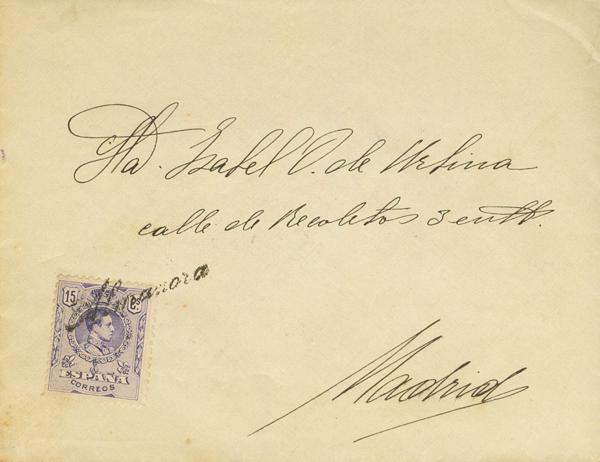 Sta. Isabel O. de Urbina
calle de Recoletos 3 entlo.
Almanzora
15 Cs.
ESPAÑA
CORREOS
Madrid